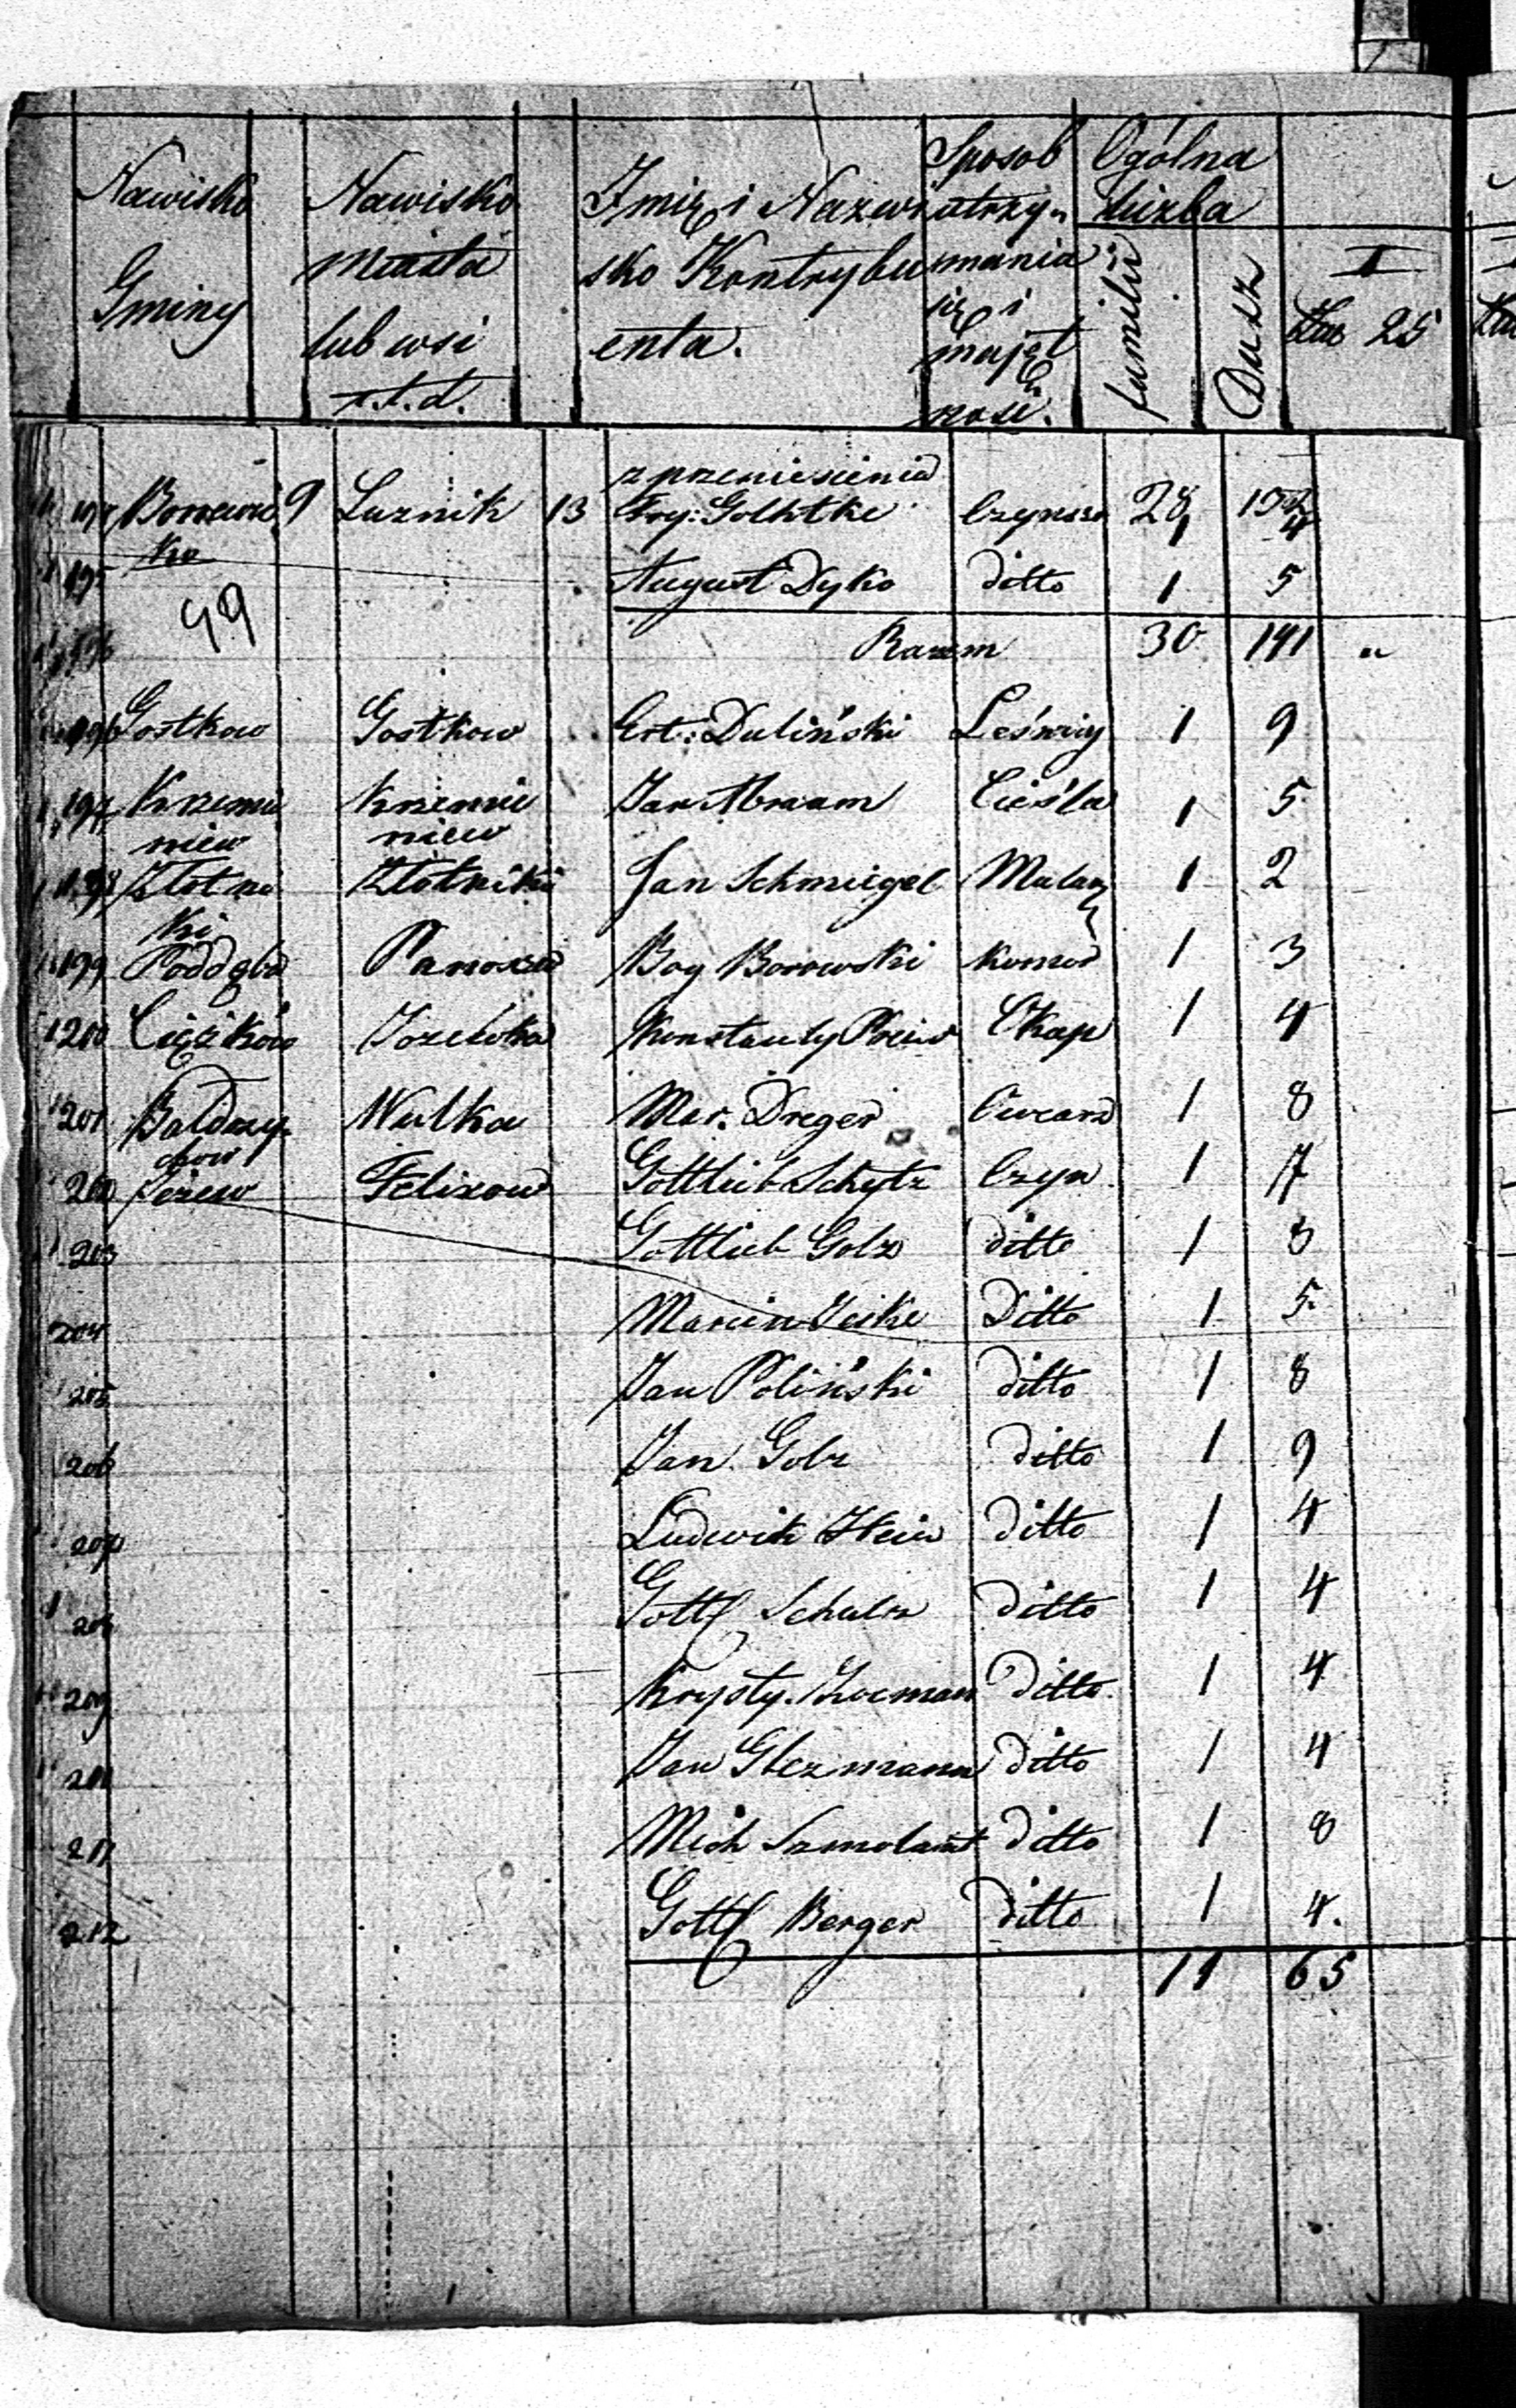 Nawisko Gminy
Nawisko Miasta lub wsi i.t.d.
Imię i Nazwisko Kontrybuenta.
Sposob utrzymania się i majętnosci.
Ogólna liczba
familii
Dusz
I
Klas 25
z przeniesienia 28
9 Luznik 13 Fry: Golhtke Czynszo 1 4
195 August Dyko ditto 1 5
99
Razem 30 141 "
196 Gostkow Gostkow Dulinski Leśniy 1 9
197 Krzemieniew Krzemieniew Jan Abraam Cieśla 1 5
198 Złotniki Złotniki Jan Schmiegel Malarz 1 2
199 Poddębi Bog Borowski Komor 1 3
200 Ciężków Jozefowka Konstanty Okup 1 4
201 Bałdrzychow Wulka Mar. Dreger Owcarz 1 8
202 Jeżew Felixow Gottlieb Schytz Czyn 1 7
203 Gottlieb Golz ditto 1 8
204 Marcin Ditto 1 5
205 Jan Poliński ditto 1 8
206 Jan Golz ditto 1 9
207 Ludwik Hein ditto 1 4
208 Gottf Schulz ditto 1 4
209 Krysty. ditto 1 4
210 Jan ditto 1 4
211 Mich ditto 1 8
212 Gottf Berger ditto 1 4.
11 65